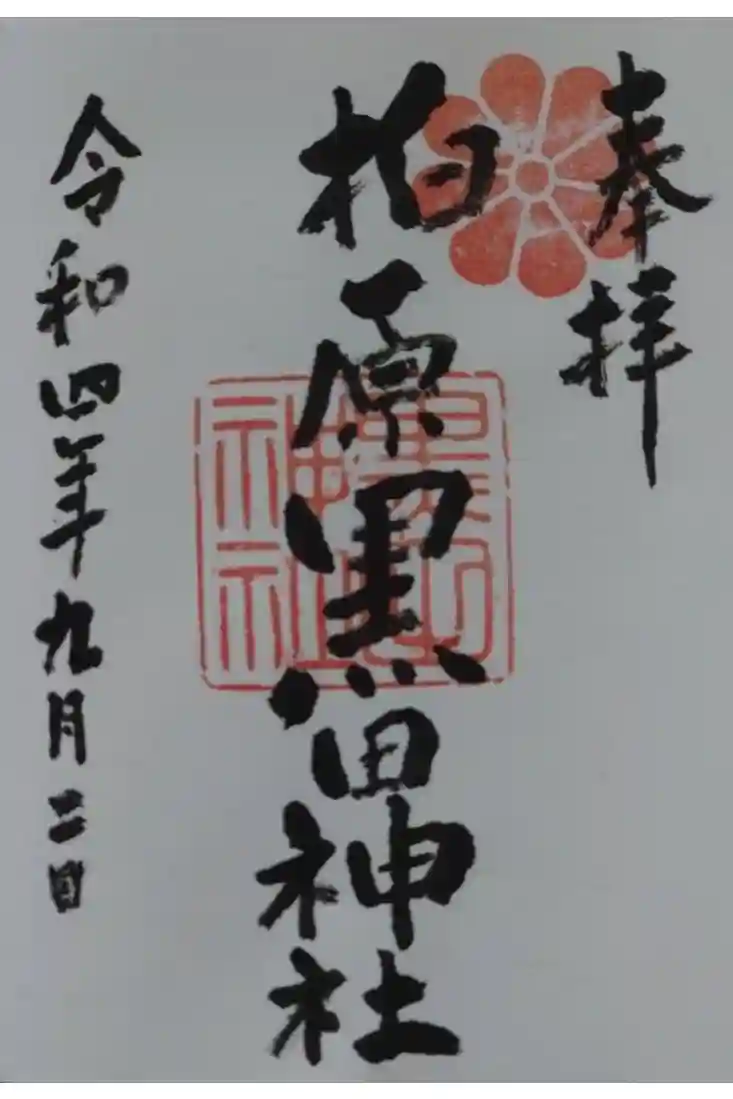 奉拝
柏原黒田神社
令和四年九月二日